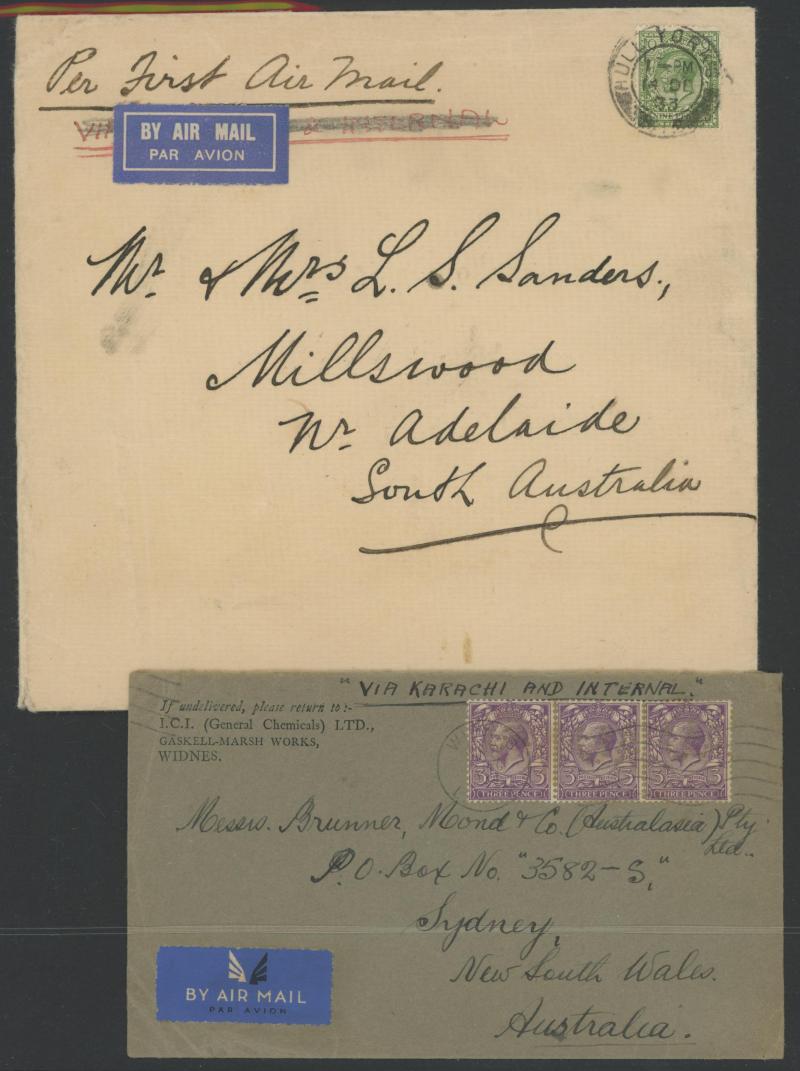 Per First Air Mail.
VIA
BY AIR MAIL
PAR AVION
HULL YORKS
PM
DE
33
Mr. & Mrs L. S. Sanders.,
Millswood
Nr. Adelaide
South Australia
"VIA KARACHI AND INTERNAL."
If undelivered, please return to:-
I.C.I. (General Chemicals) LTD.,
GASKELL-MARSH WORKS,
WIDNES.
3 3 3 3 3 3
THREE PENCE THREE PENCE THREE PENCE
Messrs. Brunner, Mond & Co. (Australasia) Pty.
Ltd..
P.O. Box No. "3582-S,"
Sydney,
New South Wales.
Australia.
BY AIR MAIL
PAR AVION